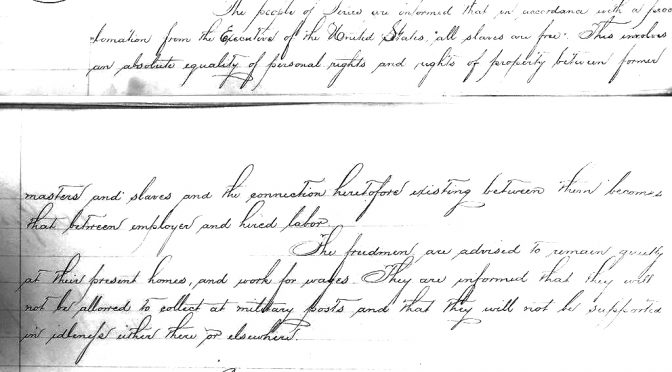 The people of Texas are informed that in accordance with a proc
lamation from the Executive of the United States, "all slaves are free". This involves
an absolute equality of personal rights and rights of property between former
masters and slaves and the connection heretofore existing between them becomes
that between employer and hired labor.
The freedmen are advised to remain quietly
at their present homes, and work for wages. They are informed that they will
not be allowed to collect at military posts and that they will not be supported
in idleness either there or elsewhere.